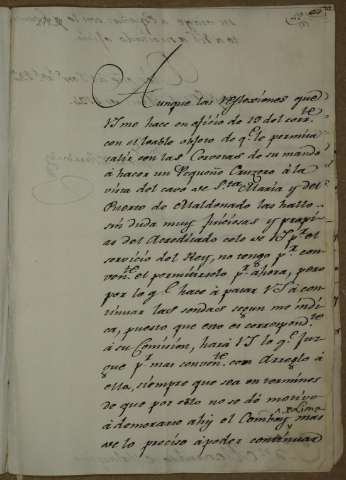 Aunque las reflexiones que
VS me hace en oficio de 19 del corr.te
con el loable objeto de q.e le permita
salir con las Corvetas de su mando
à hacer un Pequeño Cruzero à la
vista del cavo de S.ta Maria y del
Puerto de Maldonado las hallo
sin duda muy juiciosas y propi-
as del Acreditado celo de VS p.r el
servicio del Rey, no tengo p.r con-
ven.te el permitirselo p.r ahora, pero
por lo q.e hace à pasar VS à con-
tinuar las sondas segun me indi-
ca, puesto que esto es correspond.te
à su Comision, hará VS lo q.e juz-
gue p.r mas conven.te con Arreglo à
ella, siempre que sea en terminos
de que por esto no se dé motivo
à demorarse ahy el Comboy de Lima mas
de lo preciso à poder continuar